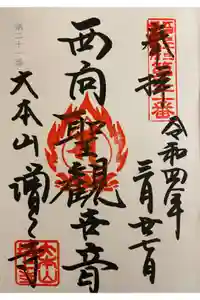 奉拝
令和四年
三月廿七日
西向聖觀世音
大本山増上寺
第二十一番